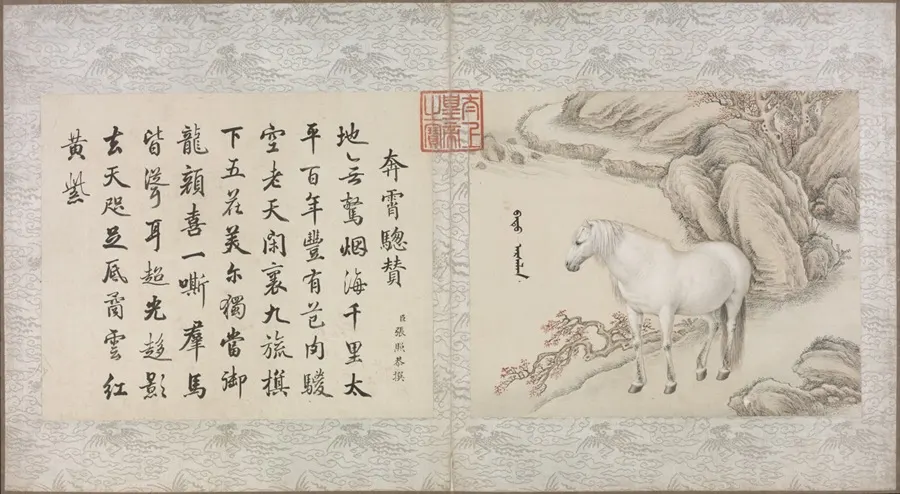 奔霄驄贊
臣張照恭撰
地无駑烟海千里太
平百年豐有芑駿
空老天閑裏九旒旗
下五花美尔獨當御
龍顏喜一嘶羣馬
皆聳耳超光影
去天咫足底矞雲紅
黃紫
太上皇帝之寶